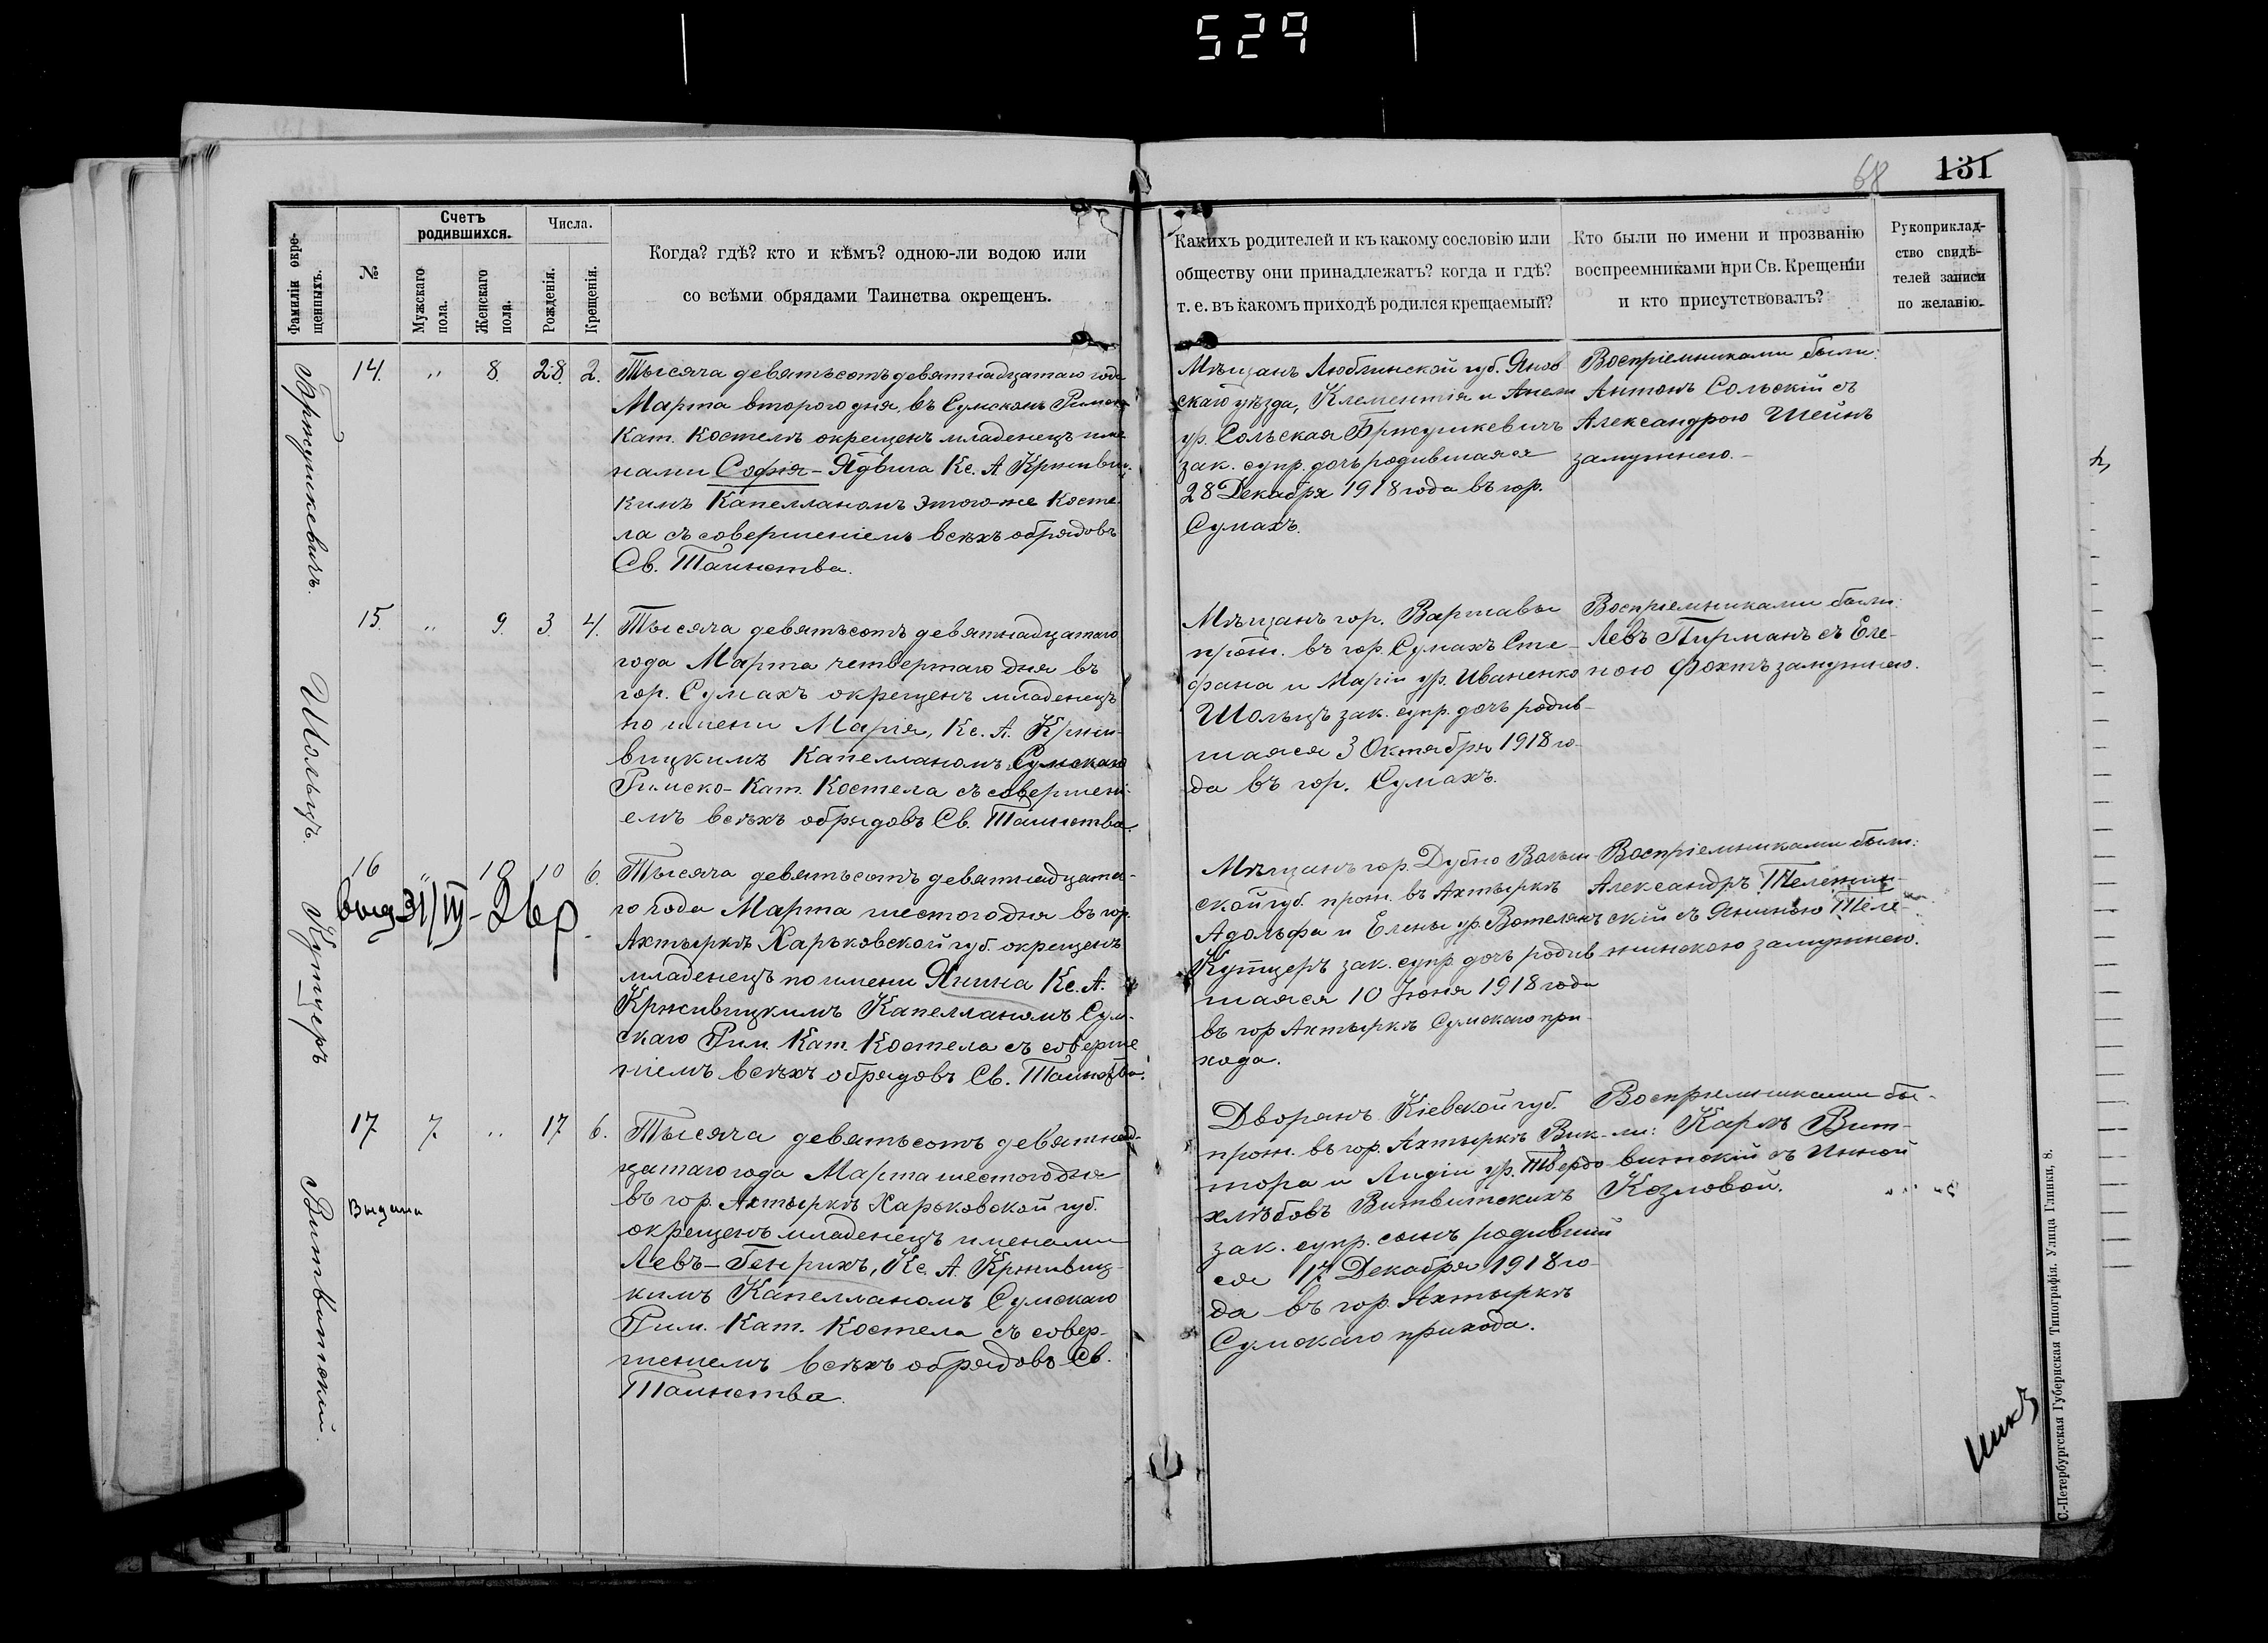 529
68
131
Фамиліи окре-
щенныхъ.
№
Счетъ
родившихся.
Мужскаго
пола.
Женскаго
пола.
Числа.
Рожденія.
Крещенія.
Когда? гдѣ? кто и кѣмъ? одною-ли водою или
со всѣми обрядами Таинства окрещенъ.
Какихъ родителей и къ какому сословію или
обществу они принадлежатъ? когда и гдѣ?
т. е. въ какомъ приходѣ родился крещаемый?
Кто были по имени и прозванію
воспреемниками при Св. Крещеніи
и кто присутствовалъ?
Рукоприклад-
ство свидѣ-
телей записи
по желанію.
Бржушкевичъ.
14. " 8. 28. 2.
Тысяча девятьсотъ девятнадцатаго года
Марта второго дня, въ Сумскомъ Римско
Кат. Костелѣ окрещенъ младенецъ име-
нами Софія-Ядвига Кс. А Крживиц-
кимъ Капелланомъ этого-же Косте-
ла съ совершеніемъ всѣхъ обрядовъ
Св. Таинства.
Мѣщанъ Люблинской губ. Янов
скаго уѣзда, Клементія и Анели
ур. Сольская Бржушкевичъ
зак. супр. дочь родившаяся
28 Декабря 1918 года въ гор.
Сумахъ.
Воспріемниками были:
Антонъ Сольскій съ
Александрою Шейнъ
замужнею.
Шольцъ.
15. " 9. 3. 4.
Тысяча девятьсотъ девятнадцатаго
года Марта четвертаго дня въ
гор. Сумахъ окрещенъ младенецъ
по имени Марія, Кс. А. Кржи-
вицкимъ Капелланомъ Сумскаго
Римско-Кат. Костела съ совершені-
емъ всѣхъ обрядовъ Св. Таинства.
Мѣщанъ гор. Варшавы
прож. въ гор. Сумахъ Сте-
фана и Маріи ур. Иваненко
Шольцъ зак. супр. дочь родив-
шаяся 3 Октября 1918 го-
да въ гор. Сумахъ.
Воспріемниками были:
Левъ Пирманъ съ Еле-
ною Фохтъ замужнею.
Кутцеръ
16 " 10 10 6.
выд 31/III - 2 вр.
Тысяча девятьсотъ девятнадцата-
го года Марта шестого дня въ гор.
Ахтыркѣ Харьковской губ. окрещенъ
младенецъ по имени Янина Кс. А.
Крживицкимъ Капелланомъ Сум-
скаго Рим. Кат. Костела съ соверше
ніемъ всѣхъ обрядовъ Св. Таинства.
Мѣщанъ гор. Дубно Волын-
ской губ. прож. въ Ахтыркѣ
Адольфа и Елены ур.
Кутцеръ зак. супр. дочь родив-
шаяся 10 Іюня 1918 года
въ гор Ахтыркѣ Сумскаго при-
хода.
Воспріемниками были:
Александръ Тележин-
скій съ Яниною Теле-
жинскою замужнею.
Витвитскій.
17 7. " 17 6.
Выдана
Тысяча девятьсотъ девятнад-
цатаго года Марта шестого дня
въ гор. Ахтыркѣ Харьковской губ.
окрещенъ младенецъ именами
Левъ-Генрихъ, Кс. А. Крживиц-
кимъ Капелланомъ Сумскаго
Рим. Кат. Костела съ совер-
шеніемъ всѣхъ обрядовъ Св.
Таинства.
Дворянъ Кіевской губ.
прож. въ гор. Ахтыркѣ Вик-
тора и Лидіи ур. Твердо-
хлѣбовъ Витвитскихъ
зак. супр. сынъ родивший
ся 17 Декабря 1918 го-
да въ гор. Ахтыркѣ
Сумскаго прихода.
Воспріемниками бы-
ли: Карлъ Вит-
витскій съ Инной
Козловой.
С.-Петербургская Губернская Типографія. Улица Глинки, 8.